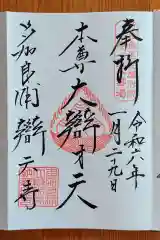 奉拝
令和六年
一月二十九日
本尊大辯才天
多加良浦辯天寺